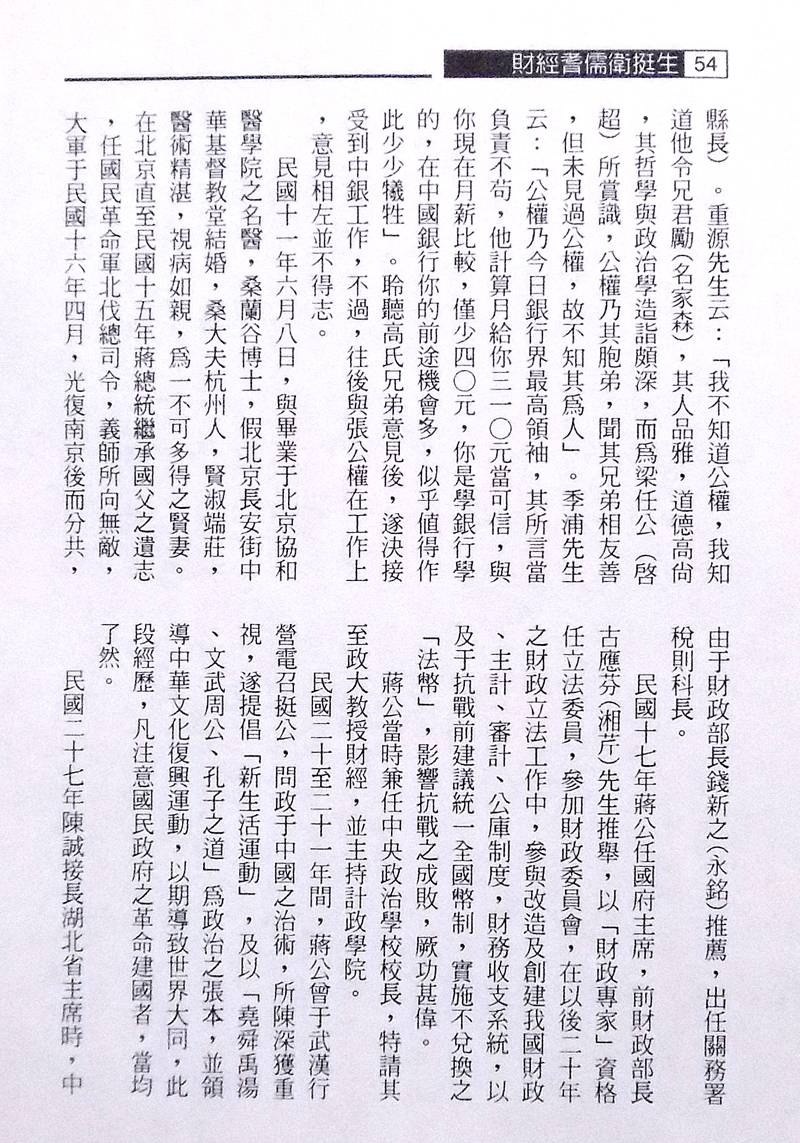 財經耆儒衛挺生 54
縣長）。重源先生云：「我不知道公權，我知
道他令兄君勵（名家森），其人品雅，道德高尙
，其哲學與政治學造詣頗深，而爲梁任公（啓
超）所賞識，公權乃其胞弟，聞其兄弟相友善
，但未見過公權，故不知其爲人」。季浦先生
云：「公權乃今日銀行界最高領袖，其所言當
負責不苟，他計算月給你三一〇元當可信，與
你現在月薪比較，僅少四〇元，你是學銀行學
的，在中國銀行你的前途機會多，似乎値得作
此少少犧牲」。聆聽高氏兄弟意見後，遂決接
受到中銀工作，不過，往後與張公權在工作上
，意見相左並不得志。
民國十一年六月八日，與畢業于北京協和
醫學院之名醫，桑蘭谷博士，假北京長安街中
華基督教堂結婚，桑大夫杭州人，賢淑端莊，
醫術精湛，視病如親，爲一不可多得之賢妻。
在北京直至民國十五年蔣總統繼承國父之遺志
，任國民革命軍北伐總司令，義師所向無敵，
大軍于民國十六年四月，光復南京後而分共，
由于財政部長錢新之（永銘）推薦，出任關務署
稅則科長。
民國十七年蔣公任國府主席，前財政部長
古應芬（湘芹）先生推舉，以「財政專家」資格
任立法委員，參加財政委員會，在以後二十年
之財政立法工作中，參與改造及創建我國財政
、主計、審計、公庫制度，財務收支系統，以
及于抗戰前建議統一全國幣制，實施不兌換之
「法幣」，影響抗戰之成敗，厥功甚偉。
蔣公當時兼任中央政治學校校長，特請其
至政大教授財經，並主持計政學院。
民國二十至二十一年間，蔣公曾于武漢行
營電召挺公，問政于中國之治術，所陳深獲重
視，遂提倡「新生活運動」，及以「堯舜禹湯
、文武周公、孔子之道」爲政治之張本，並領
導中華文化復興運動，以期導致世界大同，此
段經歷，凡注意國民政府之革命建國者，當均
了然。
民國二十七年陳誠接長湖北省主席時，中